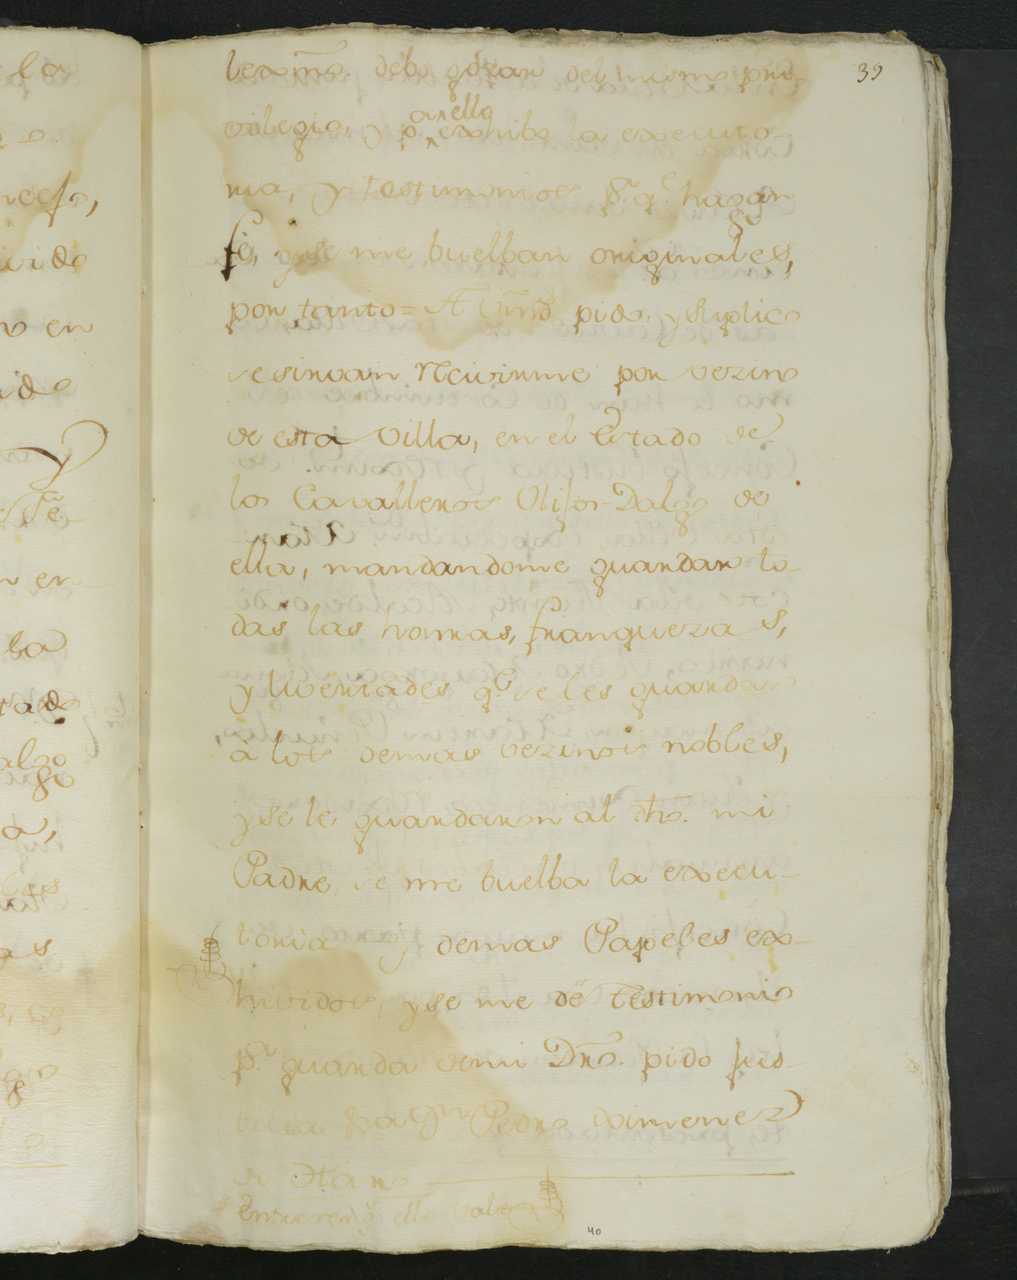 39
lexmo. debo gozar del mismo pri-
vilegio, y pa. ello exhibo la executo-
ria, y testimonios pa. qe. hagan
fe, y se me buelban originales,
por tanto = A Vmd pido, y suplico
se sirvan Recivirme por vezino
de esta Villa, en el Estado de
los Cavalleros Hijos-Dalgo de
ella, mandandome guardar to-
das las honras, franquezas,
y livertades qe. se les guardan
à los demas vezinos nobles,
y se le guardaron al dho. mi
Padre, se me buelba la execu-
toria y demas Papeles ex-
hividos, y se me dè testimonio
pa. guarda de mi Dro. pido jus-
Pedro Ximenez
de Haro
Entre reng. ello Vale
40
la
ido
en
y
en
la
tado
algo
a,
as